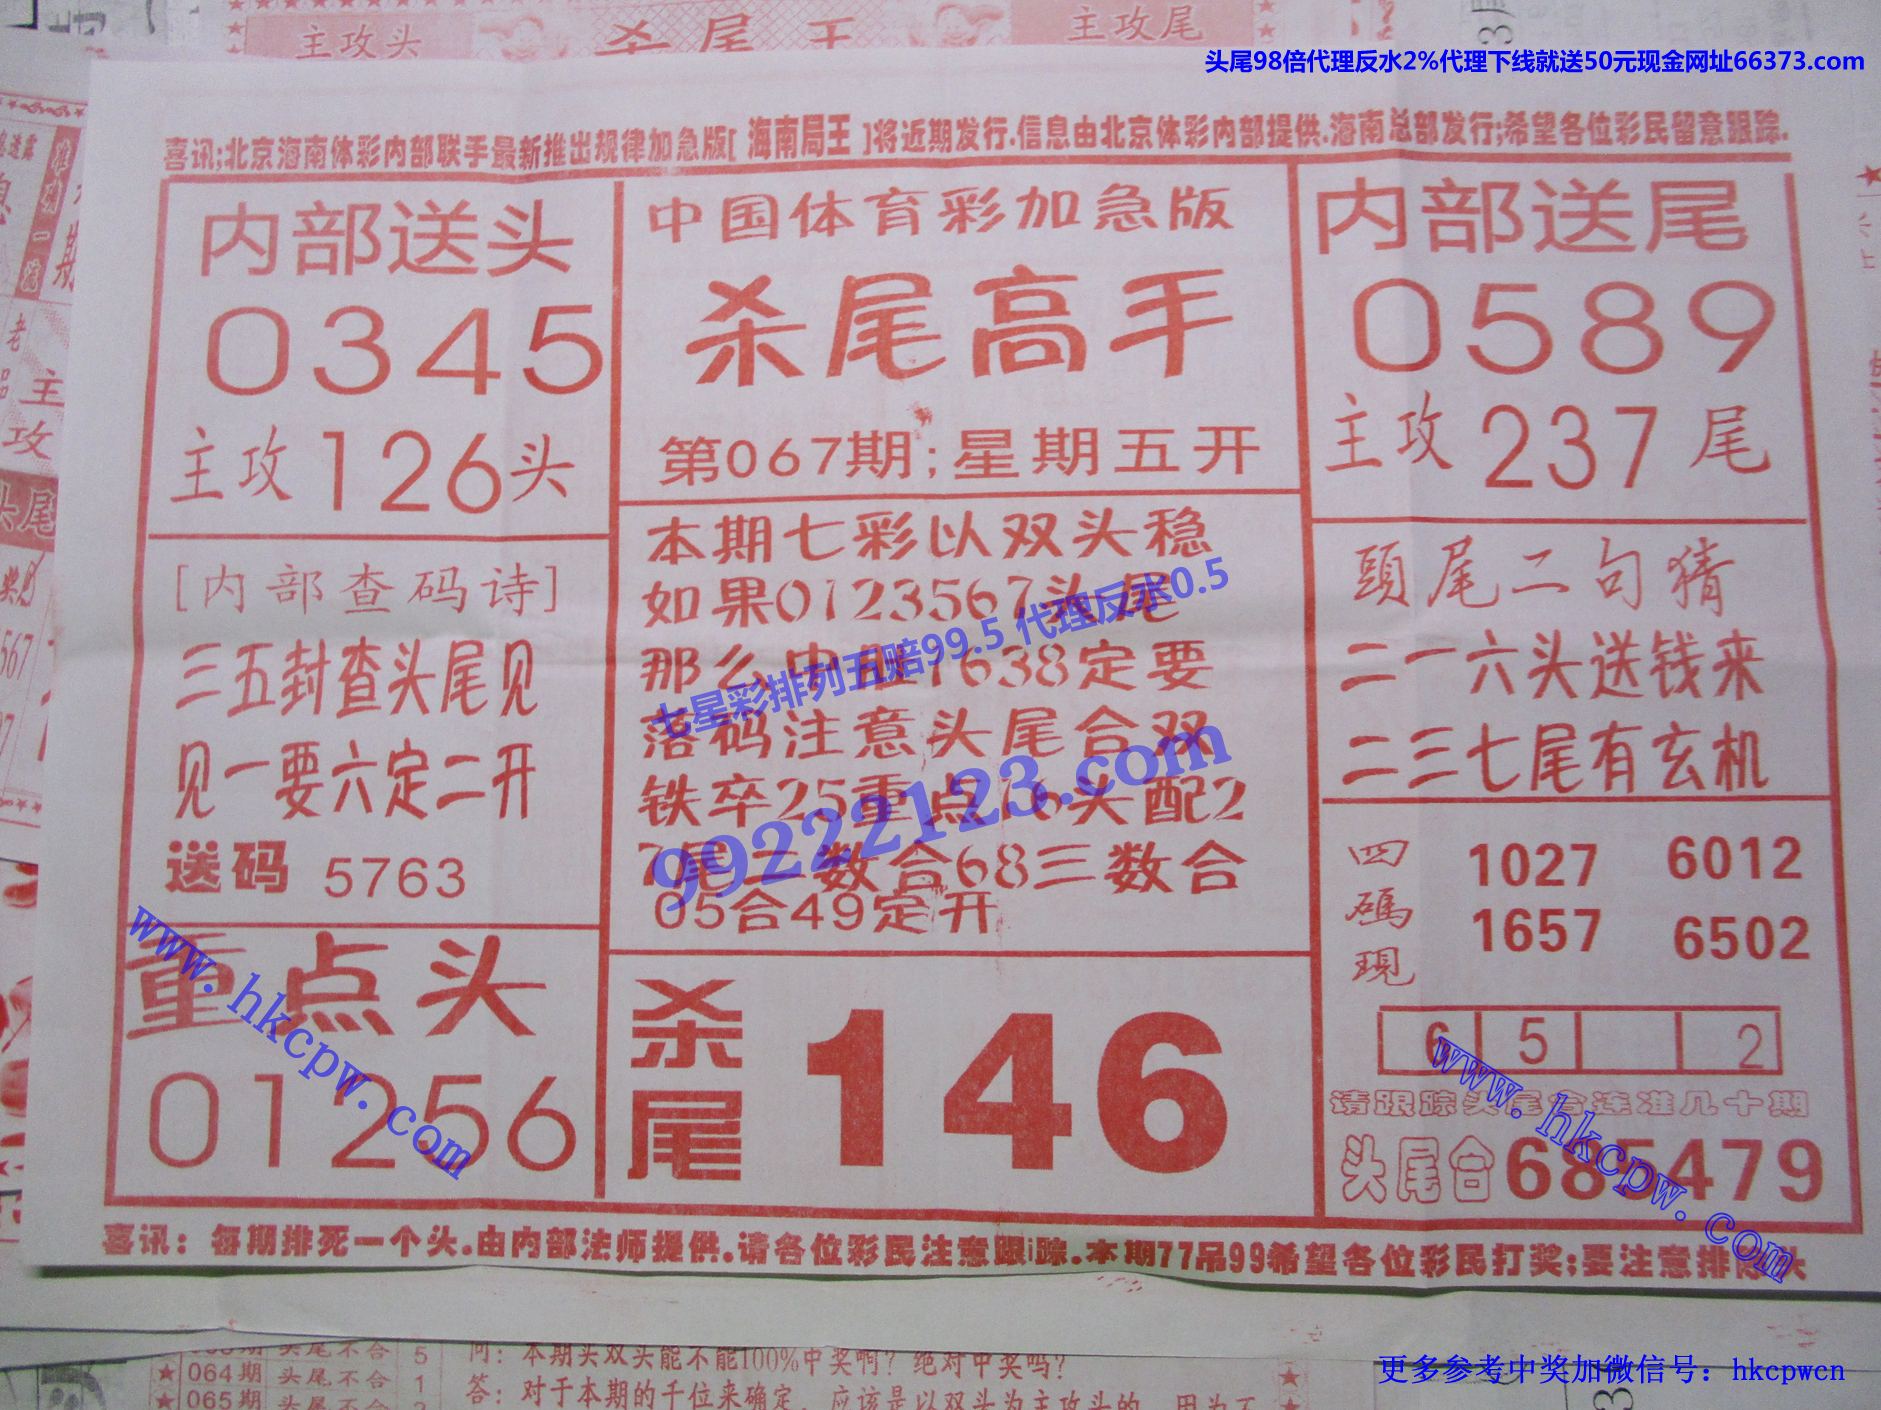 主攻头
杀尾王
主攻尾
头尾98倍代理反水2%代理下线就送50元现金网址66373.com
喜讯;北京海南体彩内部联手最新推出规律加急版[ 海南局王 ]将近期发行.信息由北京体彩内部提供.海南总部发行;希望各位彩民留意跟踪.
内部送头
0345
主攻126头
中国体育彩加急版
杀尾高手
第067期;星期五开
内部送尾
0589
主攻237尾
[内部查码诗]
三五封查头尾见
见一要六定二开
送码 5763
本期七彩以双头稳
如果0123567头尾
那么中
638定要
落码注意头尾合双
铁卒25重点16头配2
7尾二数合68三数合
05合49定开
七星彩排列五赔99.5 代理反水0.5
99222123.com
頭尾二句猜
二一六头送钱来
二三七尾有玄机
四碼現
1027 6012
1657 6502
6 5 2
请跟踪头尾合连准几十期
头尾合685479
重点头
01256
杀尾
146
www.hkcpw.com
www.hkcpw.com
喜讯：每期排死一个头.由内部法师提供.请各位彩民注意跟踪.本期77吊99希望各位彩民打奖;要注意排除头
064期 头尾不合 1
065期 头尾不合
问：本期头双头能不能100%中奖啊？绝对中奖吗？
答：对于本期的千位来确定，应该是以双头为主攻头的，因为不
更多参考中奖加微信号：hkcpwcn